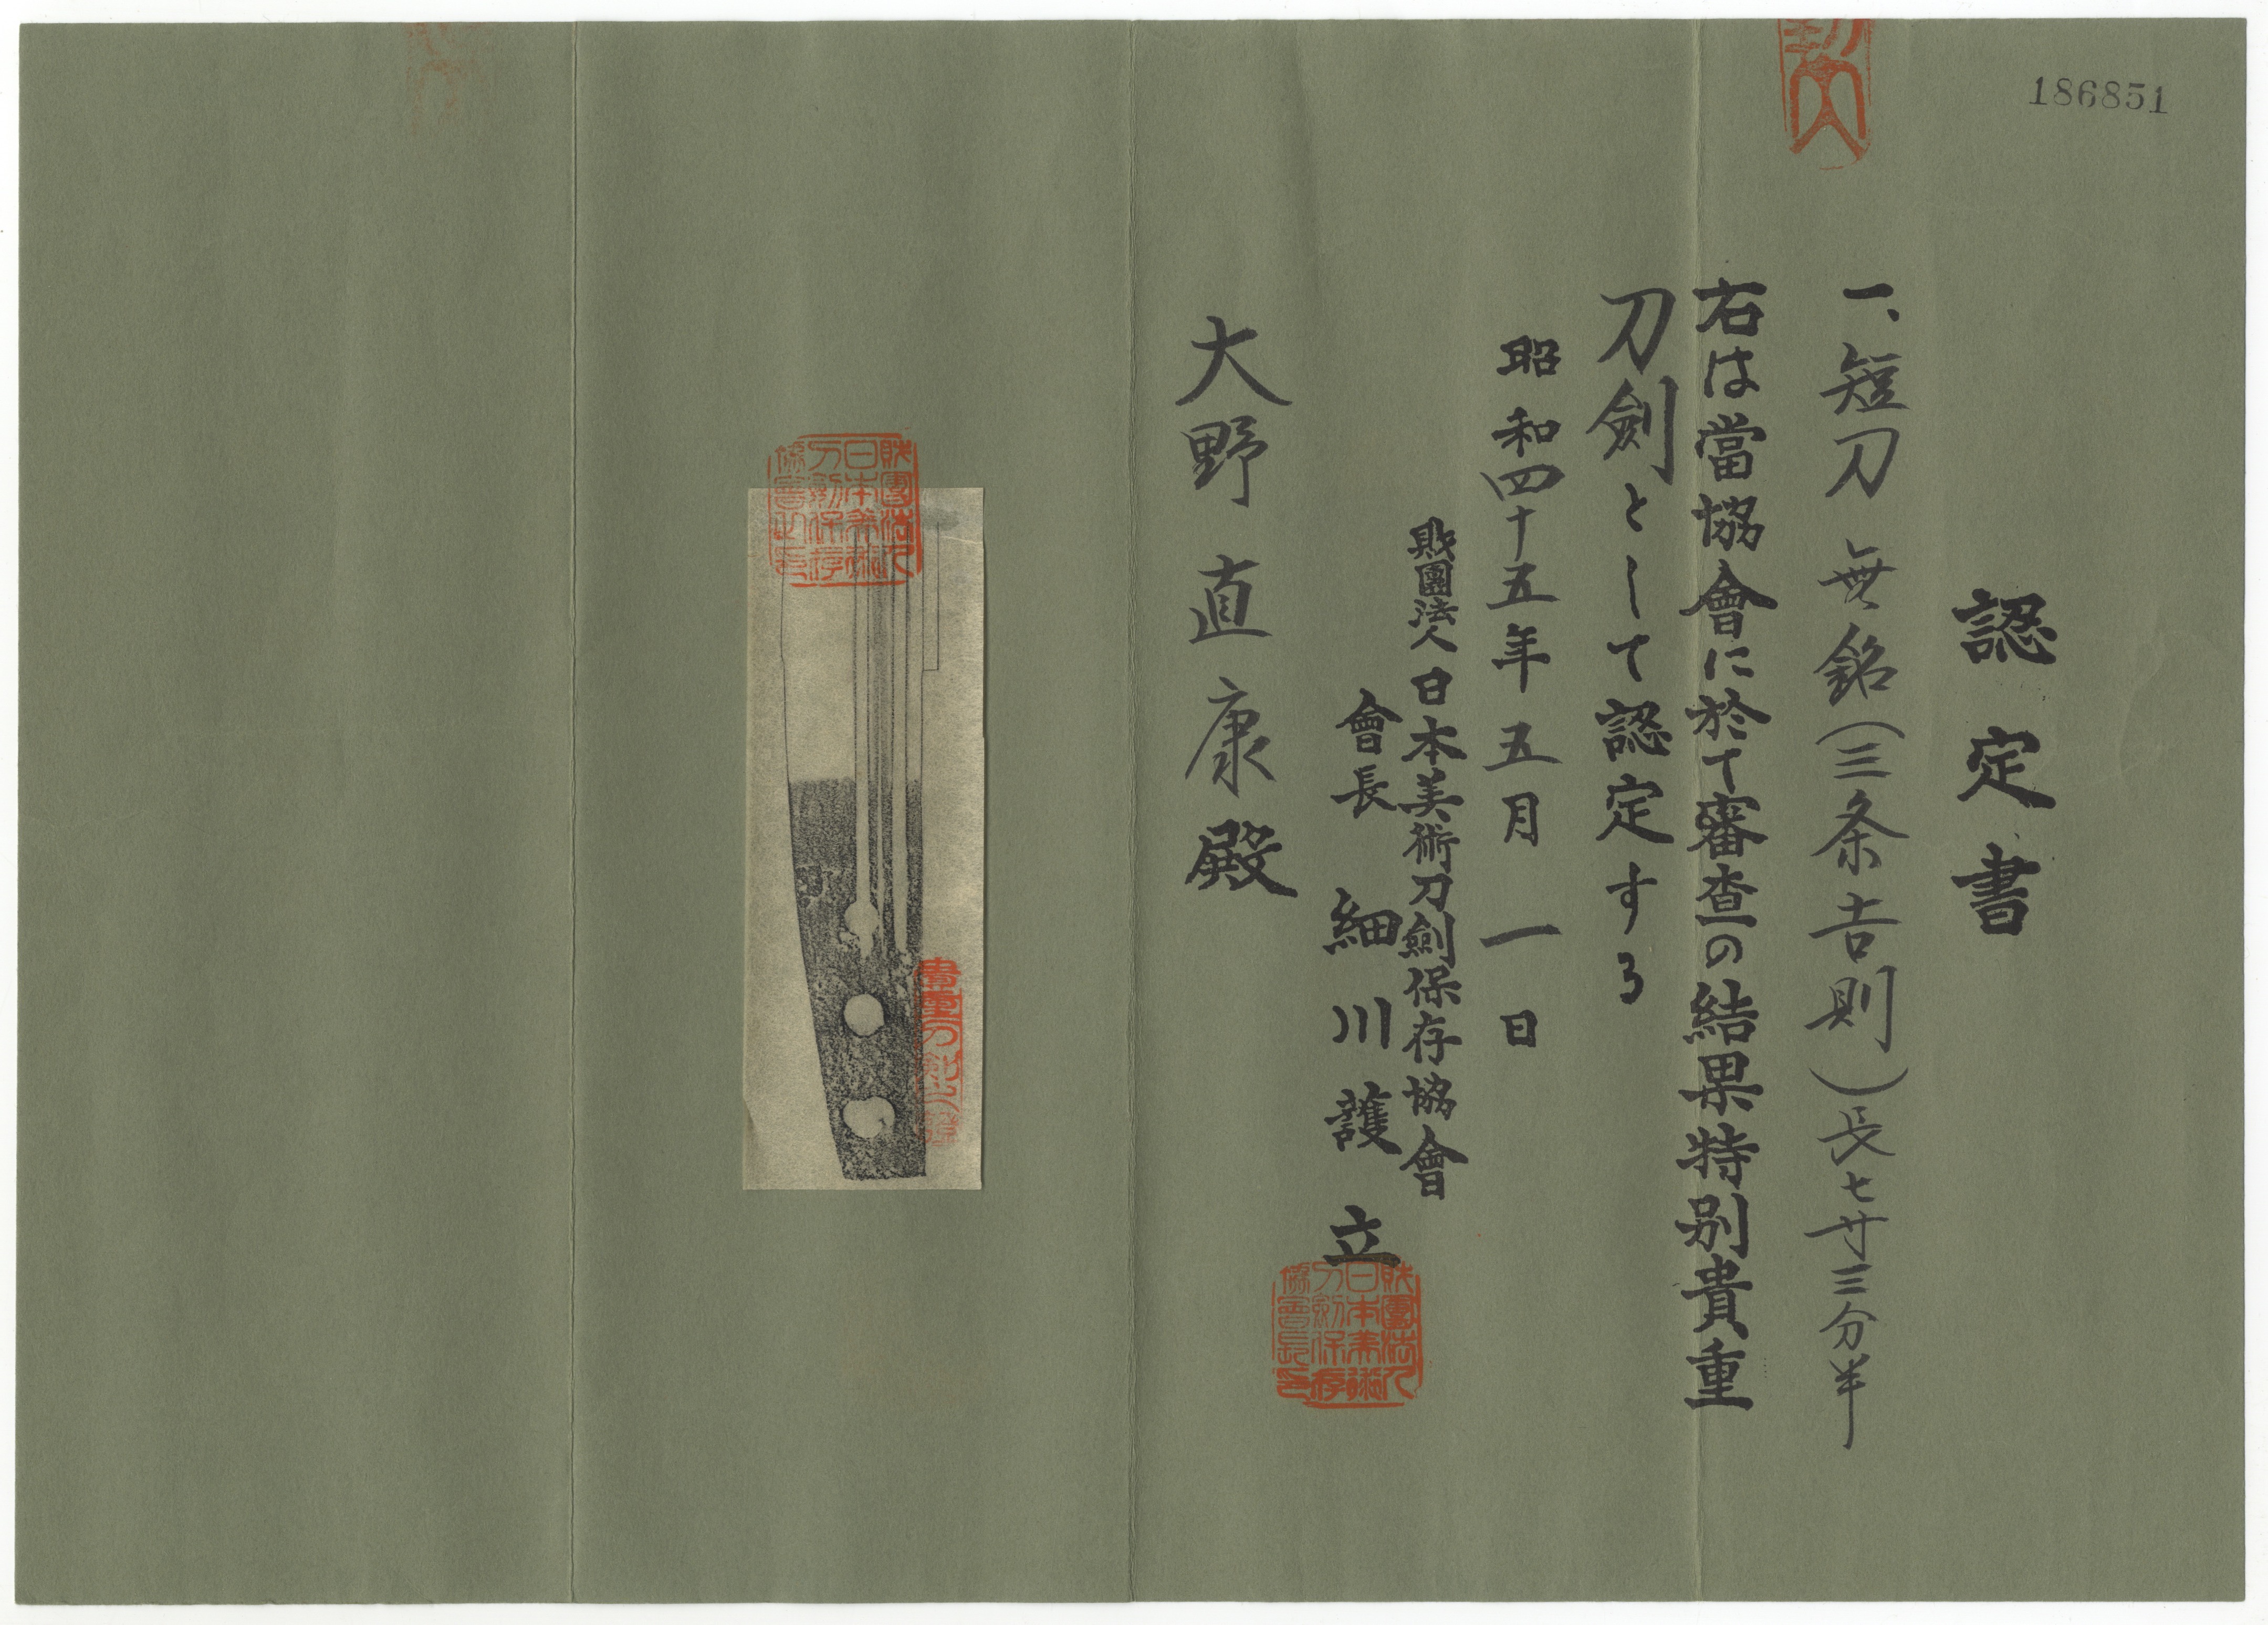 186851
認定書
一、短刀 無銘(三条吉則)長七寸三分半
右は當協會に於て審査の結果特別貴重
刀劍として認定する
昭和四十五年五月一日
財團法人日本美術刀劍保存協會
會長 細川護立
財團法人
日本美術
刀劍保存
協會長印
大野直康殿
財團法人
日本美術
刀劍保存
協會之印